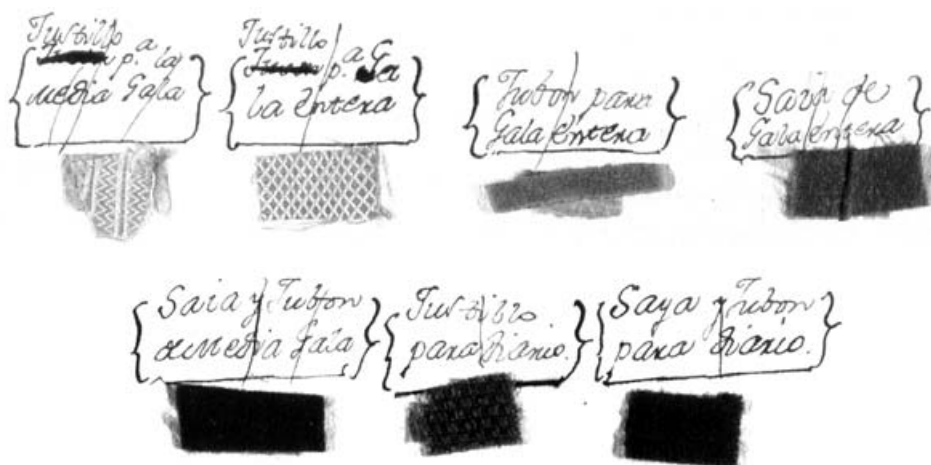 Justillo
p.ª la
Media Gala
Justillo
p.ª Ga
la Entera
Jubon para
Gala Entera
Saia de
Gala entera
Saia y Jubon
de Media Gala
Justillo
para diario.
Saya y Jubon
para diario.